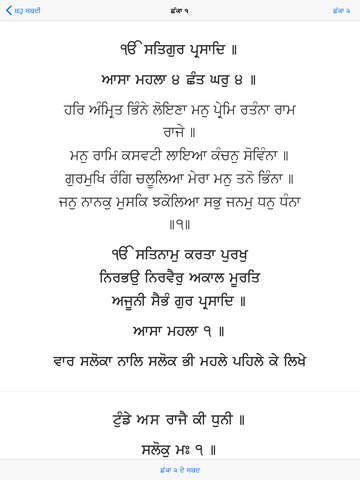 ਬਹੁ ਸਬਦੀ
ਛੱਕਾ ੧
ਛੱਕਾ ੨
ੴ ਸਤਿਗੁਰ ਪ੍ਰਸਾਦਿ ॥
ਆਸਾ ਮਹਲਾ ੪ ਛੰਤ ਘਰੁ ੪ ॥
ਹਰਿ ਅੰਮ੍ਰਿਤ ਭਿੰਨੇ ਲੋਇਣਾ ਮਨੁ ਪ੍ਰੇਮਿ ਰਤੰਨਾ ਰਾਮ
ਰਾਜੇ ॥
ਮਨੁ ਰਾਮਿ ਕਸਵਟੀ ਲਾਇਆ ਕੰਚਨੁ ਸੋਵਿੰਨਾ ॥
ਗੁਰਮੁਖਿ ਰੰਗਿ ਚਲੂਲਿਆ ਮੇਰਾ ਮਨੁ ਤਨੋ ਭਿੰਨਾ ॥
ਜਨੁ ਨਾਨਕੁ ਮੁਸਕਿ ਝਕੋਲਿਆ ਸਭੁ ਜਨਮੁ ਧਨੁ ਧੰਨਾ
॥੧॥
ੴ ਸਤਿਨਾਮੁ ਕਰਤਾ ਪੁਰਖੁ
ਨਿਰਭਉ ਨਿਰਵੈਰੁ ਅਕਾਲ ਮੂਰਤਿ
ਅਜੂਨੀ ਸੈਭੰ ਗੁਰ ਪ੍ਰਸਾਦਿ ॥
ਆਸਾ ਮਹਲਾ ੧ ॥
ਵਾਰ ਸਲੋਕਾ ਨਾਲਿ ਸਲੋਕ ਭੀ ਮਹਲੇ ਪਹਿਲੇ ਕੇ ਲਿਖੇ
ਟੁੰਡੇ ਅਸ ਰਾਜੈ ਕੀ ਧੁਨੀ ॥
ਸਲੋਕੁ ਮਃ ੧ ॥
ਛੱਕਾ ੨ ਦੇ ਸਬਦ